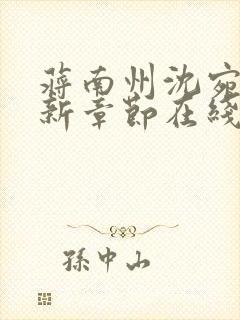 蒋南州沈宛
新章節在綫
孫中山